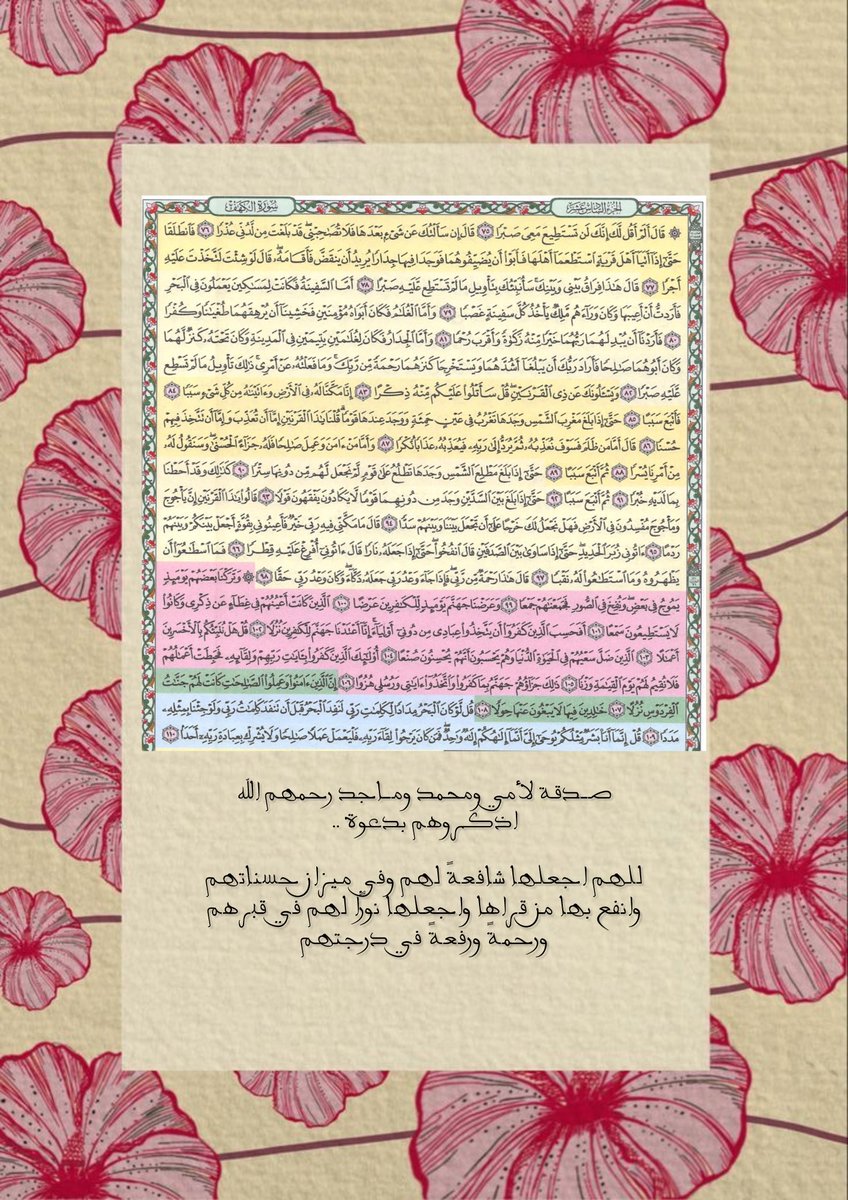 الجزء السادس عشر
سورة الكهف
۞ قَالَ أَلَمْ أَقُل لَّكَ إِنَّكَ لَن تَسْتَطِيعَ مَعِيَ صَبْرًا ٧٥ قَالَ إِن سَأَلْتُكَ عَن شَيْءٍ بَعْدَهَا فَلَا تُصَاحِبْنِي قَدْ بَلَغْتَ مِن لَّدُنِّي عُذْرًا ٧٦ فَانطَلَقَا
حَتَّىٰ إِذَا أَتَيَا أَهْلَ قَرْيَةٍ اسْتَطْعَمَا أَهْلَهَا فَأَبَوْا أَن يُضَيِّفُوهُمَا فَوَجَدَا فِيهَا جِدَارًا يُرِيدُ أَن يَنقَضَّ فَأَقَامَهُ قَالَ لَوْ شِئْتَ لَتَّخَذْتَ عَلَيْهِ
أَجْرًا ٧٧ قَالَ هَٰذَا فِرَاقُ بَيْنِي وَبَيْنِكَ سَأُنَبِّئُكَ بِتَأْوِيلِ مَا لَمْ تَسْتَطِع عَّلَيْهِ صَبْرًا ٧٨ أَمَّا السَّفِينَةُ فَكَانَتْ لِمَسَاكِينَ يَعْمَلُونَ فِي الْبَحْرِ
فَأَرَدتُّ أَنْ أَعِيبَهَا وَكَانَ وَرَاءَهُم مَّلِكٌ يَأْخُذُ كُلَّ سَفِينَةٍ غَصْبًا ٧٩ وَأَمَّا الْغُلَامُ فَكَانَ أَبَوَاهُ مُؤْمِنَيْنِ فَخَشِينَا أَن يُرْهِقَهُمَا طُغْيَانًا وَكُفْرًا
٨٠ فَأَرَدْنَا أَن يُبْدِلَهُمَا رَبُّهُمَا خَيْرًا مِّنْهُ زَكَاةً وَأَقْرَبَ رُحْمًا ٨١ وَأَمَّا الْجِدَارُ فَكَانَ لِغُلَامَيْنِ يَتِيمَيْنِ فِي الْمَدِينَةِ وَكَانَ تَحْتَهُ كَنزٌ لَّهُمَا
وَكَانَ أَبُوهُمَا صَالِحًا فَأَرَادَ رَبُّكَ أَن يَبْلُغَا أَشُدَّهُمَا وَيَسْتَخْرِجَا كَنزَهُمَا رَحْمَةً مِّن رَّبِّكَ وَمَا فَعَلْتُهُ عَنْ أَمْرِي ذَٰلِكَ تَأْوِيلُ مَا لَمْ تَسْطِع
عَّلَيْهِ صَبْرًا ٨٢ وَيَسْأَلُونَكَ عَن ذِي الْقَرْنَيْنِ قُلْ سَأَتْلُوا عَلَيْكُم مِّنْهُ ذِكْرًا ٨٣ إِنَّا مَكَّنَّا لَهُ فِي الْأَرْضِ وَآتَيْنَاهُ مِن كُلِّ شَيْءٍ سَبَبًا ٨٤
فَأَتْبَعَ سَبَبًا ٨٥ حَتَّىٰ إِذَا بَلَغَ مَغْرِبَ الشَّمْسِ وَجَدَهَا تَغْرُبُ فِي عَيْنٍ حَمِئَةٍ وَوَجَدَ عِندَهَا قَوْمًا قُلْنَا يَا ذَا الْقَرْنَيْنِ إِمَّا أَن تُعَذِّبَ وَإِمَّا أَن تَتَّخِذَ فِيهِمْ
حُسْنًا ٨٦ قَالَ أَمَّا مَن ظَلَمَ فَسَوْفَ نُعَذِّبُهُ ثُمَّ يُرَدُّ إِلَىٰ رَبِّهِ فَيُعَذِّبُهُ عَذَابًا نُّكْرًا ٨٧ وَأَمَّا مَنْ آمَنَ وَعَمِلَ صَالِحًا فَلَهُ جَزَاءً الْحُسْنَىٰ وَسَنَقُولُ لَهُ
مِنْ أَمْرِنَا يُسْرًا ٨٨ ثُمَّ أَتْبَعَ سَبَبًا ٨٩ حَتَّىٰ إِذَا بَلَغَ مَطْلِعَ الشَّمْسِ وَجَدَهَا تَطْلُعُ عَلَىٰ قَوْمٍ لَّمْ نَجْعَل لَّهُم مِّن دُونِهَا سِتْرًا ٩٠ كَذَٰلِكَ وَقَدْ أَحَطْنَا
بِمَا لَدَيْهِ خُبْرًا ٩١ ثُمَّ أَتْبَعَ سَبَبًا ٩٢ حَتَّىٰ إِذَا بَلَغَ بَيْنَ السَّدَّيْنِ وَجَدَ مِن دُونِهِمَا قَوْمًا لَّا يَكَادُونَ يَفْقَهُونَ قَوْلًا ٩٣ قَالُوا يَا ذَا الْقَرْنَيْنِ إِنَّ يَأْجُوجَ
وَمَأْجُوجَ مُفْسِدُونَ فِي الْأَرْضِ فَهَلْ نَجْعَلُ لَكَ خَرْجًا عَلَىٰ أَن تَجْعَلَ بَيْنَنَا وَبَيْنَهُمْ سَدًّا ٩٤ قَالَ مَا مَكَّنِّي فِيهِ رَبِّي خَيْرٌ فَأَعِينُونِي بِقُوَّةٍ أَجْعَلْ بَيْنَكُمْ وَبَيْنَهُمْ
رَدْمًا ٩٥ آتُونِي زُبَرَ الْحَدِيدِ حَتَّىٰ إِذَا سَاوَىٰ بَيْنَ الصَّدَفَيْنِ قَالَ انفُخُوا حَتَّىٰ إِذَا جَعَلَهُ نَارًا قَالَ آتُونِي أُفْرِغْ عَلَيْهِ قِطْرًا ٩٦ فَمَا اسْطَاعُوا أَن
يَظْهَرُوهُ وَمَا اسْتَطَاعُوا لَهُ نَقْبًا ٩٧ قَالَ هَٰذَا رَحْمَةٌ مِّن رَّبِّي فَإِذَا جَاءَ وَعْدُ رَبِّي جَعَلَهُ دَكَّاءَ وَكَانَ وَعْدُ رَبِّي حَقًّا ٩٨ ۞ وَتَرَكْنَا بَعْضَهُمْ يَوْمَئِذٍ
يَمُوجُ فِي بَعْضٍ وَنُفِخَ فِي الصُّورِ فَجَمَعْنَاهُمْ جَمْعًا ٩٩ وَعَرَضْنَا جَهَنَّمَ يَوْمَئِذٍ لِّلْكَافِرِينَ عَرْضًا ١٠٠ الَّذِينَ كَانَتْ أَعْيُنُهُمْ فِي غِطَاءٍ عَن ذِكْرِي وَكَانُوا
لَا يَسْتَطِيعُونَ سَمْعًا ١٠١ أَفَحَسِبَ الَّذِينَ كَفَرُوا أَن يَتَّخِذُوا عِبَادِي مِن دُونِي أَوْلِيَاءَ إِنَّا أَعْتَدْنَا جَهَنَّمَ لِلْكَافِرِينَ نُزُلًا ١٠٢ قُلْ هَلْ نُنَبِّئُكُم بِالْأَخْسَرِينَ
أَعْمَالًا ١٠٣ الَّذِينَ ضَلَّ سَعْيُهُمْ فِي الْحَيَاةِ الدُّنْيَا وَهُمْ يَحْسَبُونَ أَنَّهُمْ يُحْسِنُونَ صُنْعًا ١٠٤ أُولَٰئِكَ الَّذِينَ كَفَرُوا بِآيَاتِ رَبِّهِمْ وَلِقَائِهِ فَحَبِطَتْ أَعْمَالُهُمْ
فَلَا نُقِيمُ لَهُمْ يَوْمَ الْقِيَامَةِ وَزْنًا ١٠٥ ذَٰلِكَ جَزَاؤُهُمْ جَهَنَّمُ بِمَا كَفَرُوا وَاتَّخَذُوا آيَاتِي وَرُسُلِي هُزُوًا ١٠٦ إِنَّ الَّذِينَ آمَنُوا وَعَمِلُوا الصَّالِحَاتِ كَانَتْ لَهُمْ جَنَّاتُ
الْفِرْدَوْسِ نُزُلًا ١٠٧ خَالِدِينَ فِيهَا لَا يَبْغُونَ عَنْهَا حِوَلًا ١٠٨ قُل لَّوْ كَانَ الْبَحْرُ مِدَادًا لِّكَلِمَاتِ رَبِّي لَنَفِدَ الْبَحْرُ قَبْلَ أَن تَنفَدَ كَلِمَاتُ رَبِّي وَلَوْ جِئْنَا بِمِثْلِهِ
مَدَدًا ١٠٩ قُلْ إِنَّمَا أَنَا بَشَرٌ مِّثْلُكُمْ يُوحَىٰ إِلَيَّ أَنَّمَا إِلَٰهُكُمْ إِلَٰهٌ وَاحِدٌ فَمَن كَانَ يَرْجُوا لِقَاءَ رَبِّهِ فَلْيَعْمَلْ عَمَلًا صَالِحًا وَلَا يُشْرِكْ بِعِبَادَةِ رَبِّهِ أَحَدًا ١١٠
صدقة لأمي ومحمد وماجد رحمهم الله
اذكروهم بدعوة ..
للهم اجعلها شافعةً لهم وفي ميزان حسناتهم
وانفع بها من قراها واجعلها نورًا لهم في قبرهم
ورحمةً ورفعةً في درجتهم